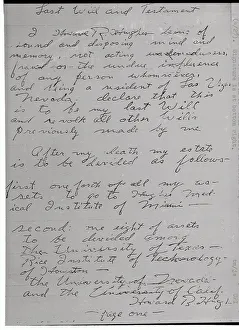 Last Will and Testament
I Howard R. Hughes being of
sound and disposing mind and
memory, not acting under duress,
fraud or the undue influence
of any person whomsoever,
and being a resident of Las Vegas
Nevada, declare that this
is to be my last Will
and revolk all other Wills
previously made by me
After my death my estate
is to be devided as follows
first: one forth of all my as-
sets to go to Hughes Med-
ical Institute of Miami
second: one eight of assets
to be devided among
the University of Texas
Rice Institute of Technology
of Houston
the University of Nevada
and the University of Calif.
Howard R. Hughes
page one